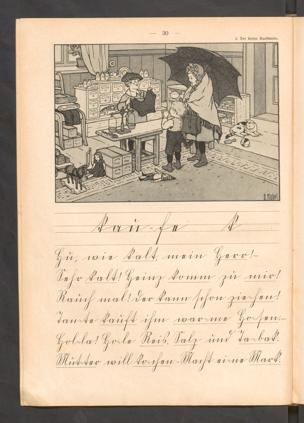 — 30 —
2. Der kleine Kaufmann.
kau-fe k
Hu, wie kalt, mein Herr!-
Sehr kalt! Heinz komm zu mir!
Rauch mal! Der kann schon zie-hen!
Tan-te kauft ihm war-me Ho-sen!-
Hol-la! Ho-le Reis, Salz und Ta-bak.
Mut-ter will ko-chen. Macht ei-ne Mark.